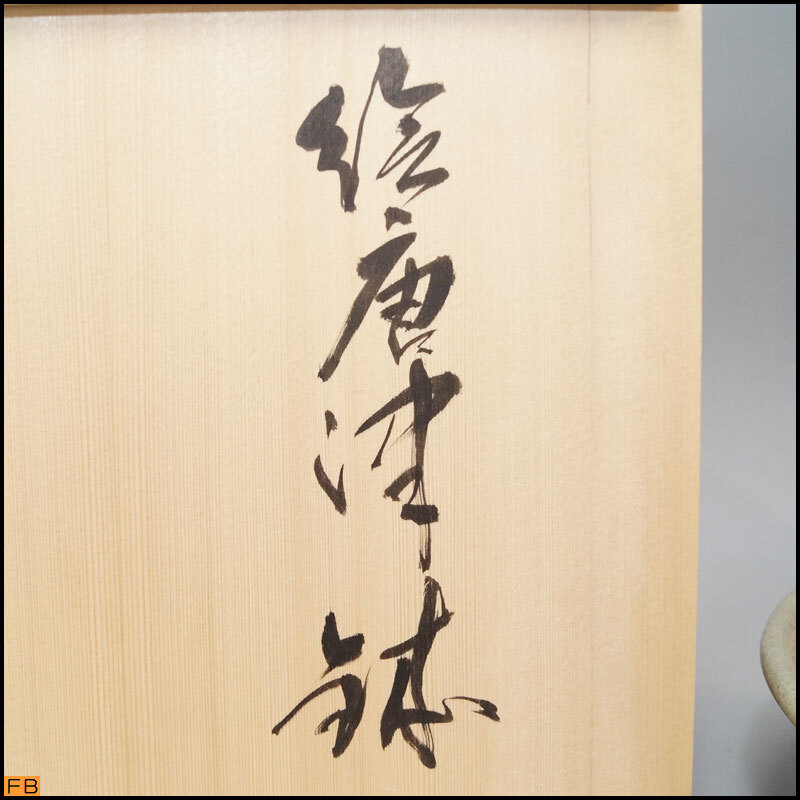 絵唐津鉢
FB